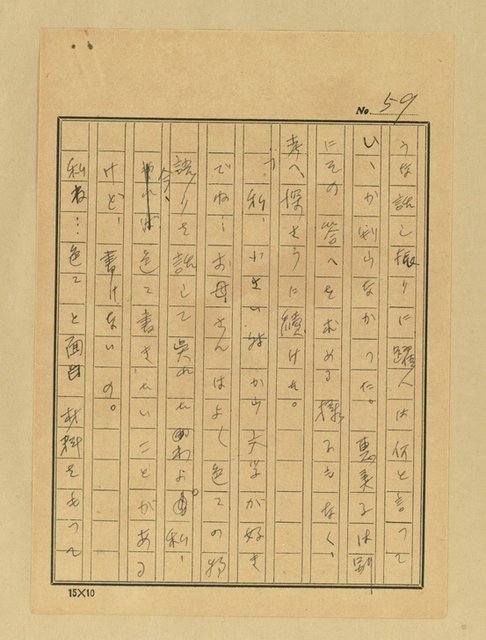 No. 59
うな話し振りに躍人は何と言つて
いゝか判らなかつた。恵美子は別
にその答へを求める様子もなく、
考へ探さうに続けた。
「私、小さい時から文学が好き
でね…お母さんはよく色々の物
語りを話して呉れたわよ。私、
今、色々書きたいことがある
けど、書けないの。
私ね…色々と面白い材料をもつて
15×10